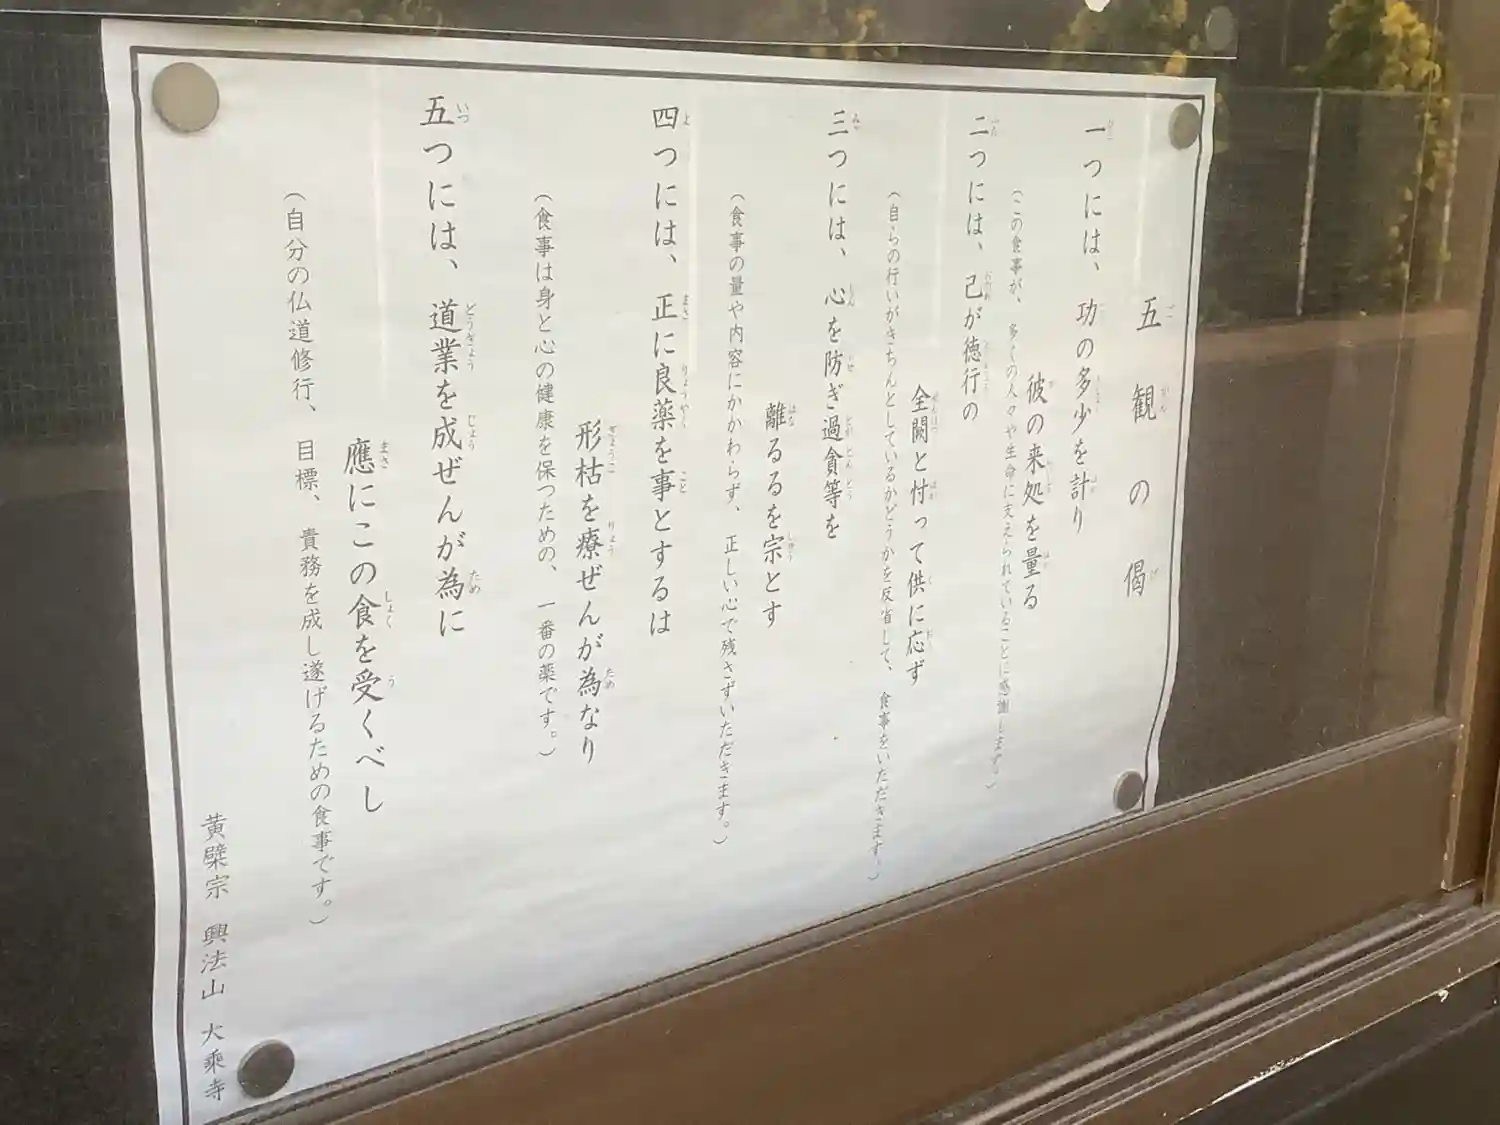 五観の偈
一つには、功の多少を計り
彼の来処を量る
(この食事が、多くの人々や生命に支えられていることに感謝します。)
二つには、己が徳行の
全闕と忖って供に応ず
(自らの行いがきちんとしているかどうかを反省して、食事をいただきます。)
三つには、心を防ぎ過貪等を
離るるを宗とす
(食事の量や内容にかかわらず、正しい心で残さずいただきます。)
四つには、正に良薬を事とするは
形枯を療ぜんが為なり
(食事は身と心の健康を保つための、一番の薬です。)
五つには、道業を成ぜんが為に
應にこの食を受くべし
(自分の仏道修行、目標、責務を成し遂げるための食事です。)
黄檗宗 興法山 大乘寺